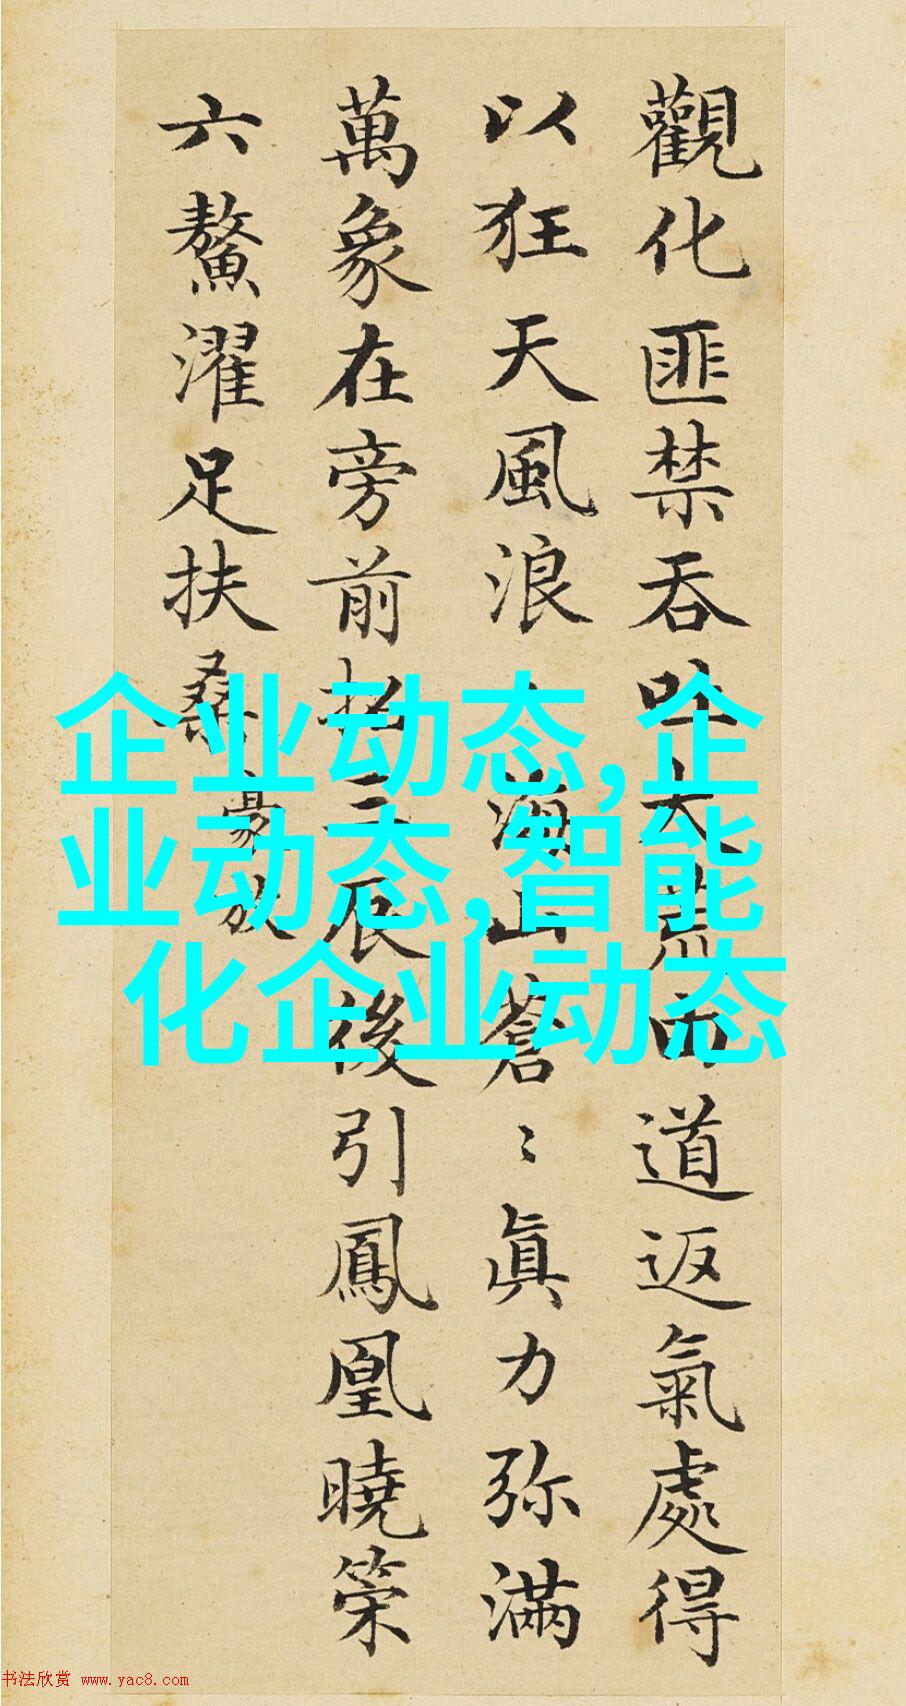 觀化匪禁吞吐大荒由道返氣處得
以狂天風浪浪海山蒼〻眞力弥滿
萬象在旁前招三辰後引鳳凰曉策
六鰲濯足扶桑
豪放
企业动态,企
业动态,智能
化企业动态
书法欣赏 www.yac8.com